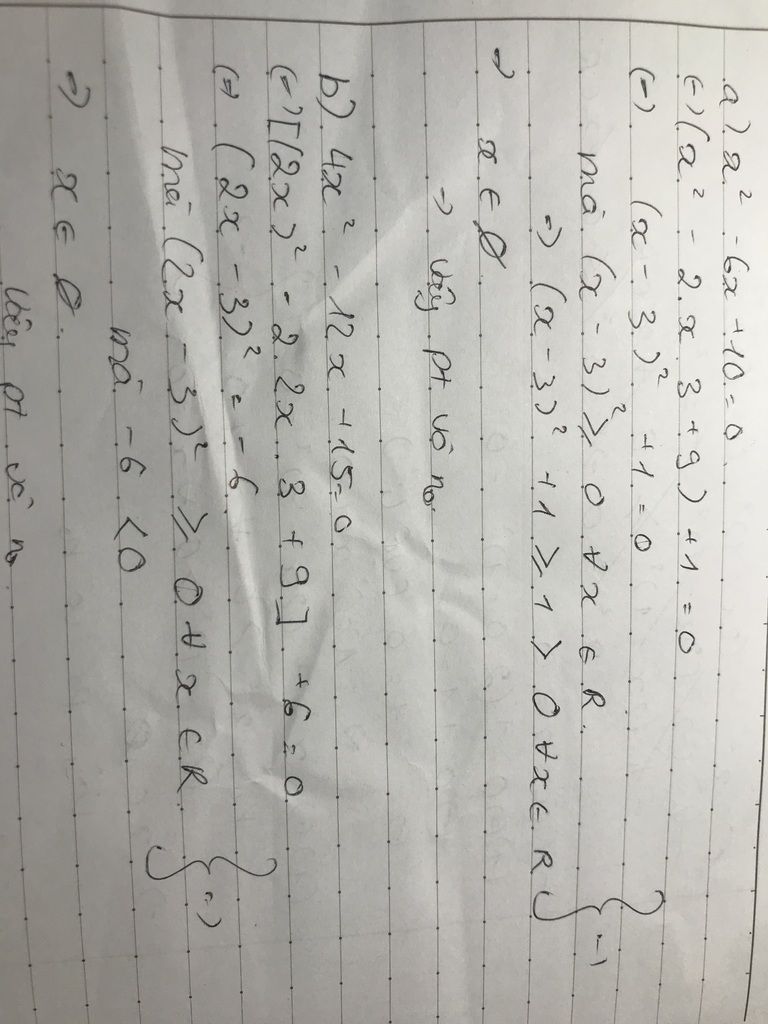 a) x² - 6x + 10 = 0
(=) (x² - 2.x.3 + 9) + 1 = 0
(=) (x - 3)² + 1 = 0
mà (x - 3)² ≥ 0 ∀ x ∈ R
=) (x - 3)² + 1 ≥ 1 > 0 ∀x ∈ R } =)
=) x ∈ ∅
=) Vậy pt vô no
b) 4x² - 12x + 15 = 0
(=) [(2x)² - 2.2x.3 + 9] + 6 = 0
(=) (2x - 3)² = -6
mà (2x - 3)² ≥ 0 ∀ x ∈ R } =)
mà -6 < 0
=) x ∈ ∅.
Vậy pt vô no